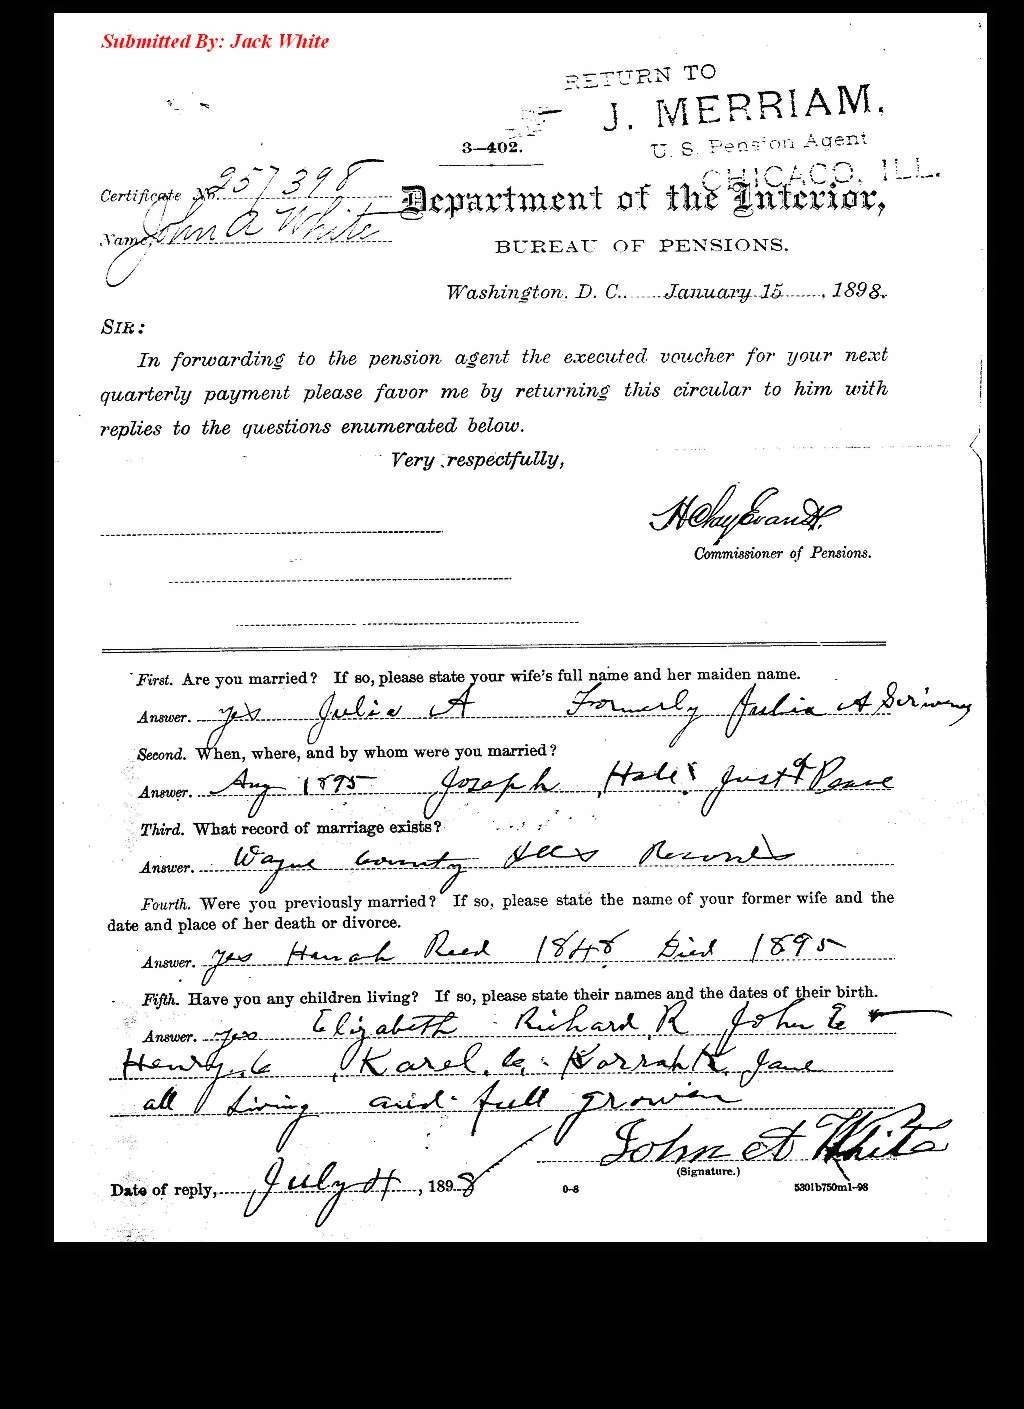 Submitted By: Jack White
RETURN TO
J. MERRIAM,
U. S. Pension Agent
CHICAGO, ILL.
3—402.
Certificate No. 257398
Name, John A White
Department of the Interior,
BUREAU OF PENSIONS.
Washington, D. C., January 15, 1898.
SIR:
In forwarding to the pension agent the executed voucher for your next
quarterly payment please favor me by returning this circular to him with
replies to the questions enumerated below.
Very respectfully,
H Clay Evans
Commissioner of Pensions.
First. Are you married? If so, please state your wife's full name and her maiden name.
Answer. yes Julia A Formerly Julia A
Second. When, where, and by whom were you married?
Answer. Aug 1895 Joseph Just of Peace
Third. What record of marriage exists?
Answer. Wayne County Ills Records
Fourth. Were you previously married? If so, please state the name of your former wife and the
date and place of her death or divorce.
Answer. yes Hanah Reed 1848 Died 1895
Fifth. Have you any children living? If so, please state their names and the dates of their birth.
Answer. yes Elizabeth Richard R John E
Henry Jane
all Living and full growen
John A White
(Signature.)
Date of reply, July 4, 1898
0-8
5301b750m1-98